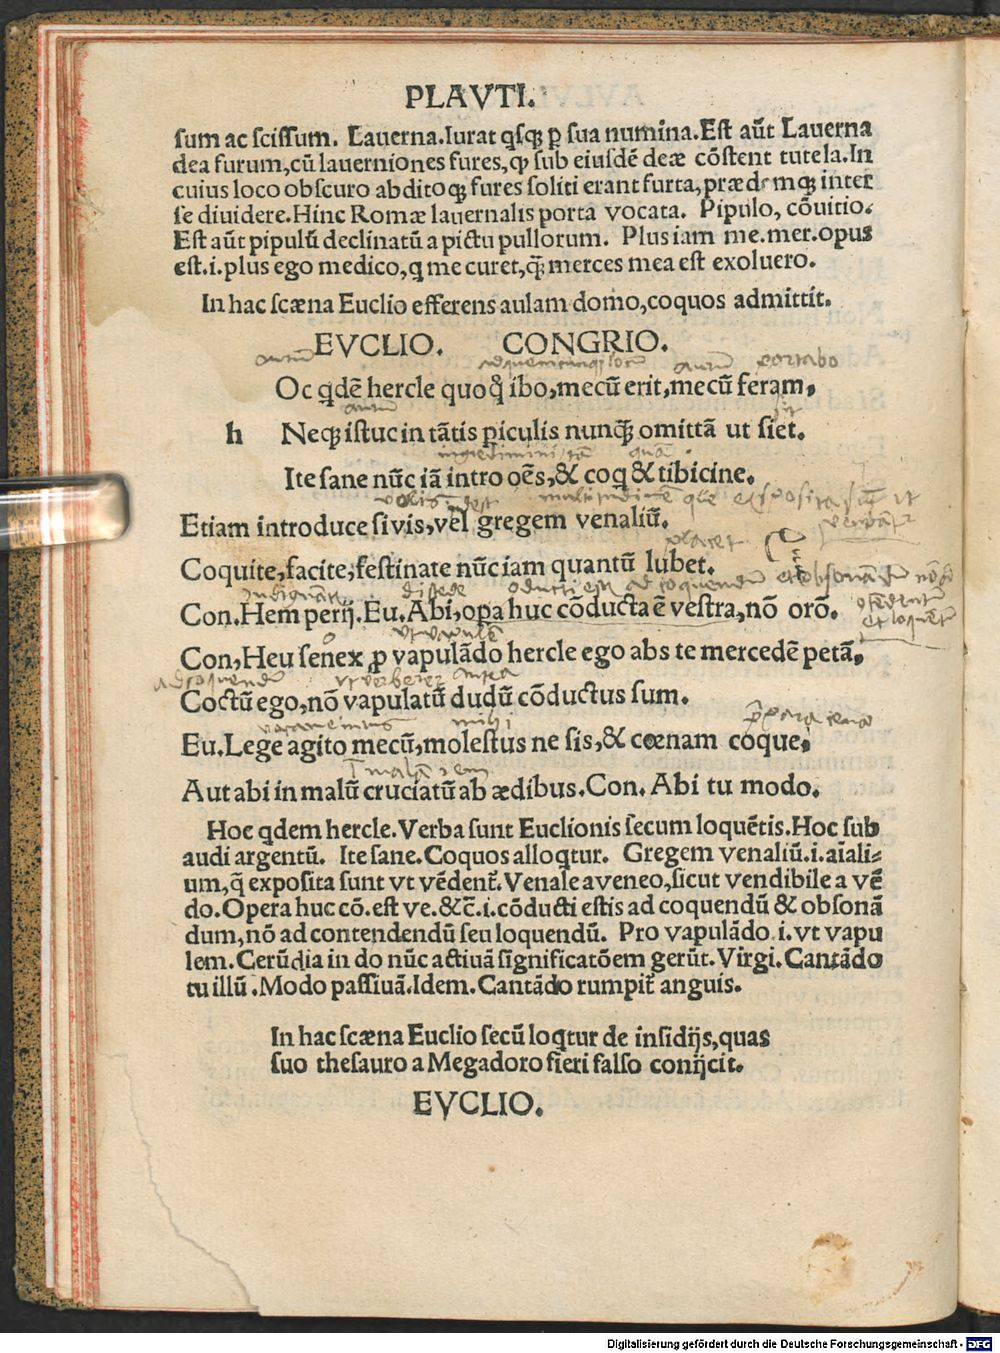 PLAVTI.
sum ac scissum. Lauerna. Iurat qsqꝫ p̱ sua numina. Est aūt Lauerna
dea furum, cū lauerniones fures, ꝙ sub eiusdē deæ cōstent tutela. In
cuius loco obscuro abditoqꝫ fures soliti erant furta, prædamqꝫ inter
se diuidere. Hinc Romæ lauernalis porta vocata. Pipulo, cōuitio.
Est aūt pipulū declinatū a pictu pullorum. Plus iam me. mer. opus
est. i. plus ego medico, q me curet, q̄ꝫ merces mea est exoluero.
In hac scæna Euclio efferens aulam domo, coquos admittit.
EVCLIO. CONGRIO.
aurū adquemcunqꝫ locū aurū portabo
Oc qdē hercle quoq̊ ibo, mecū erit, mecū feram,
aurum sit
h Neqꝫ istuc in tātis p̱iculis nunq̄ꝫ omittā ut siet.
ingredimini tā quā
Ite sane nūc iā intro oēs, & coq & tibicine.
velis idest multitudinē que exposita sūt vt
vendāt
Etiam introduce si vis, vel gregem venaliū.
placet
Coquite, facite, festinate nūc iam quantū lubet.
Indignātis discede conducti estis ad coquendū et obsonādū nō
et loquendū
Con. Hem perij. Eu. Abi, opa huc cōducta ē vestra, nō orō.
o vt vapulē
Con, Heu senex ꝓ vapulādo hercle ego abs te mercedē petā,
ad coquendū vt verberer antea
Coctū ego, nō vapulatū dudū cōductus sum.
mihi p̄para cenā
Eu. Lege agito mecū, molestus ne sis, & cœnam coque,
I malā rem
Aut abi in malū cruciatū ab ædibus. Con. Abi tu modo.
Hoc qdem hercle. Verba sunt Euclionis secum loquētis. Hoc sub
audi argentū. Ite sane. Coquos alloqtur. Gregem venaliū. i. aīali⸗
um, q̄ exposita sunt vt vēdent̄. Venale a veneo, sicut vendibile a vē
do. Opera huc cō. est ve. &c̄. i. cōducti estis ad coquendū & obsonā
dum, nō ad contendendū seu loquendū. Pro vapulādo i. vt vapu
lem. Cerūdia in do nūc actiuā significatōem gerūt. Virgi. Cantādo
tu illū. Modo passiuā. Idem. Cantādo rumpit̄ anguis.
In hac scæna Euclio secū loqtur de insidijs, quas
suo thesauro a Megadoro fieri falso conijcit.
EVCLIO.
Digitalisierung gefördert durch die Deutsche Forschungsgemeinschaft - DFG